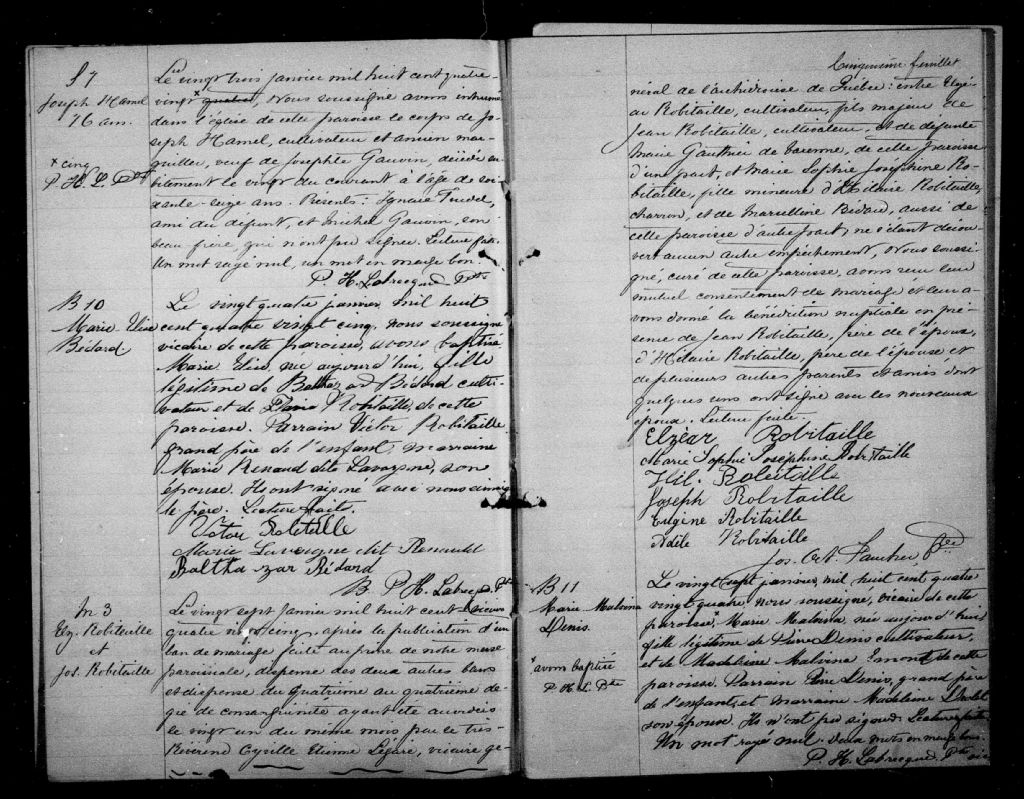 S 7
Joseph Hamel
76 ans.
x cinq
P. H. L. Ptre
Le vingt trois janvier mil huit cent quatre-
vingt x quatre, Nous soussigné avons inhumé
dans l'église de cette paroisse le corps de Jo-
seph Hamel, cultivateur et ancien mar-
guiller, veuf de Josephte Gauvin, décédé su-
bitement le vingt du courant à l'âge de soi-
xante-seize ans. Présents: Ignace Trudel,
ami du défunt, et Michel Gauvin, son
beau frère, qui n'ont pu signer. Lecture faite.
Un mot rayé nul, un mot en marge bon.
P. H. Labrecque Ptre
B 10
Marie Elise
Bédard.
Le vingt quatre janvier mil huit
cent quatre vingt cinq, nous soussigné
vicaire de cette paroisse, avons baptisé
Marie Elise, née aujourd'hui, fille
légitime de Balthazar Bédard culti-
vateur et de Robitaille, de cette
paroisse. Parrain Victor Robitaille
grand père de l'enfant, marraine
Marie Renaud dite Lavergne, son
épouse. Ils ont signé avec nous ainsi que
le père. Lecture faite.
Victor Robitaille
Marie Lavergne dit Renauld
Balthazar Bédard
P. H. Labrecque Ptre
M 3
Elz. Robitaille
et
Jos. Robitaille
Le vingt sept Janvier mil huit cent
quatre vingt cinq, après la publication d'un
ban de mariage faite au prône de notre messe
paroissiale, dispense des deux autres bans
et dispense du quatrième au quatrième de-
gré de consanguinité ayant été accordés
le vingt un du même mois par le très-
Révérend Cyrille Etienne Légaré, vicaire gé-
Cinquième feuillet
néral de l'archidiocèse de Québec: entre Elzé-
ar Robitaille, cultivateur, fils majeur de
Jean Robitaille, cultivateur, et de défunte
Marie Gauthier de Varenne, de cette paroisse
d'un part, et Marie Sophie Joséphine Ro-
bitaille, fille mineure d'Hilaire Robitaille,
charron, et de Marcelline Bédard, aussi de
cette paroisse d'autre part; ne s'étant décou-
vert aucun autre empêchement, Nous soussi-
gné, curé de cette paroisse, avons reçu leur
mutuel consentement de mariage et leur a-
vons donné la bénédiction nuptiale en pré-
sence de Jean Robitaille, père de l'époux,
d'Hilaire Robitaille, père de l'épouse, et
de plusieurs autres parents et amis dont
quelques uns ont signé avec les nouveaux
époux. Lecture faite.
Elzéar Robitaille
Marie Sophie Joséphine Robitaille
Hil. Robitaille
Joseph Robitaille
Eugène Robitaille
Adèle Robitaille
Jos. Oct. Faucher, Ptre
B 11
Marie Malvina
Denis.
x avons baptisé
P. H. L. Ptre
Le vingt sept janvier, mil huit cent quatre
vingt quatre, nous soussigné, vicaire de cette
paroisse x, Marie Malvina née aujourd'hui
fille légitime de Pierre Denis cultivateur,
et de Madeleine Malvina Emond, de cette
paroisse. Parrain Pierre Denis, grand père
de l'enfant, et marraine Madeleine
son épouse. Ils n'ont pu signer. Lecture faite
Un mot rayé nul. Deux mots en marge bons.
P. H. Labrecque Ptre vic